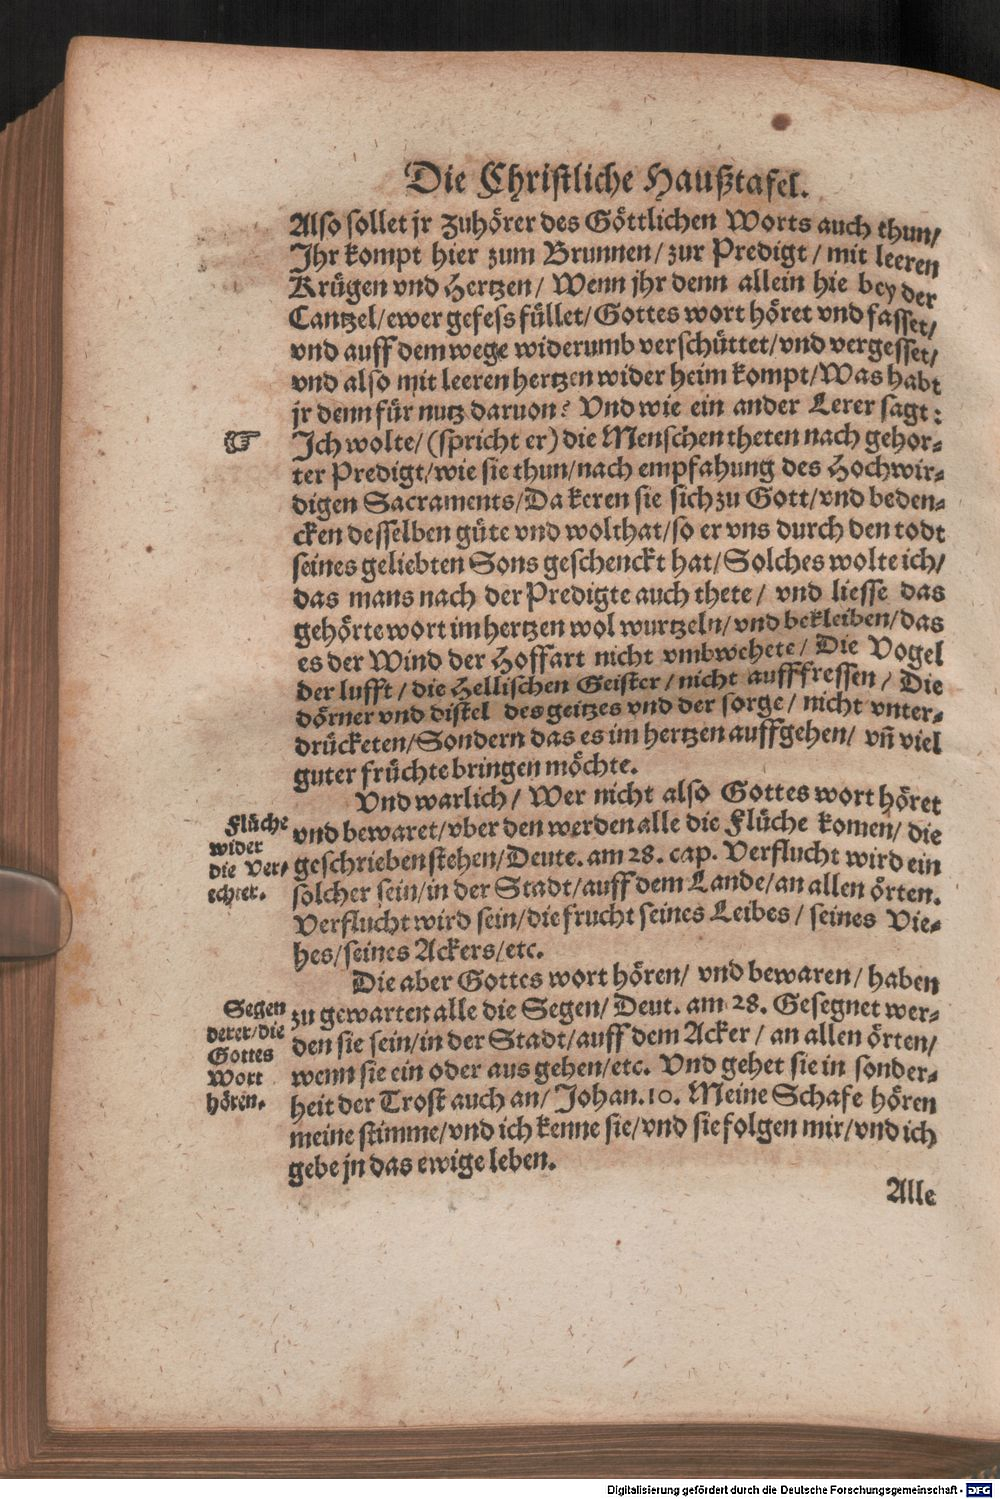 Die Christliche Haußtafel.
Also sollet jr Zuhörer des Göttlichen Worts auch thun/
Ihr kompt hier zum Brunnen/ zur Predigt / mit leeren
Krügen vnd Hertzen/ Wenn jhr denn allein hie bey der
Cantzel/ ewer gefess füllet/ Gottes wort höret vnd fasset/
vnd auff dem wege widerumb verschüttet/ vnd vergesset/
vnd also mit leeren hertzen wider heim kompt/ Was habt
jr denn für nutz daruon? Vnd wie ein ander Lerer sagt:
☞ Ich wolte/ (spricht er) die Menschen theten nach gehor-
ter Predigt/ wie sie thun/ nach empfahung des Hochwir-
digen Sacraments/ Da keren sie sich zu Gott/ vnd beden-
cken desselben güte vnd wolthat/ so er vns durch den todt
seines geliebten Sons geschenckt hat/ Solches wolte ich/
das mans nach der Predigte auch thete / vnd liesse das
gehörte wort im hertzen wol wurtzeln/ vnd bekleiben/ das
es der Wind der Hoffart nicht vmbwehete/ Die Vogel
der lufft / die Hellischen Geister / nicht aufffressen / Die
dörner vnd distel des geitzes vnd der sorge / nicht vnter-
drücketen/ Sondern das es im hertzen auffgehen/ vñ viel
guter früchte bringen möchte.
Vnd warlich / Wer nicht also Gottes wort höret
vnd bewaret/ vber den werden alle die Flüche komen/ die
geschrieben stehen/ Deute. am 28. cap. Verflucht wird ein
solcher sein/ in der Stadt/ auff dem Lande/ an allen örten.
Verflucht wird sein/ die frucht seines Leibes / seines Vie-
hes/ seines Ackers/ etc.
Flüche
wider
die Ver-
echter.
Die aber Gottes wort hören/ vnd bewaren/ haben
zu gewarten alle die Segen/ Deut. am 28. Gesegnet wer-
den sie sein/ in der Stadt/ auff dem Acker / an allen örten/
wenn sie ein oder aus gehen/ etc. Vnd gehet sie in sonder-
heit der Trost auch an/ Johan. 10. Meine Schafe hören
meine stimme/ vnd ich kenne sie/ vnd sie folgen mir/ vnd ich
gebe jn das ewige leben.
Segen
derer/ die
Gottes
Wort
hören.
Alle
Digitalisierung gefördert durch die Deutsche Forschungsgemeinschaft - DFG